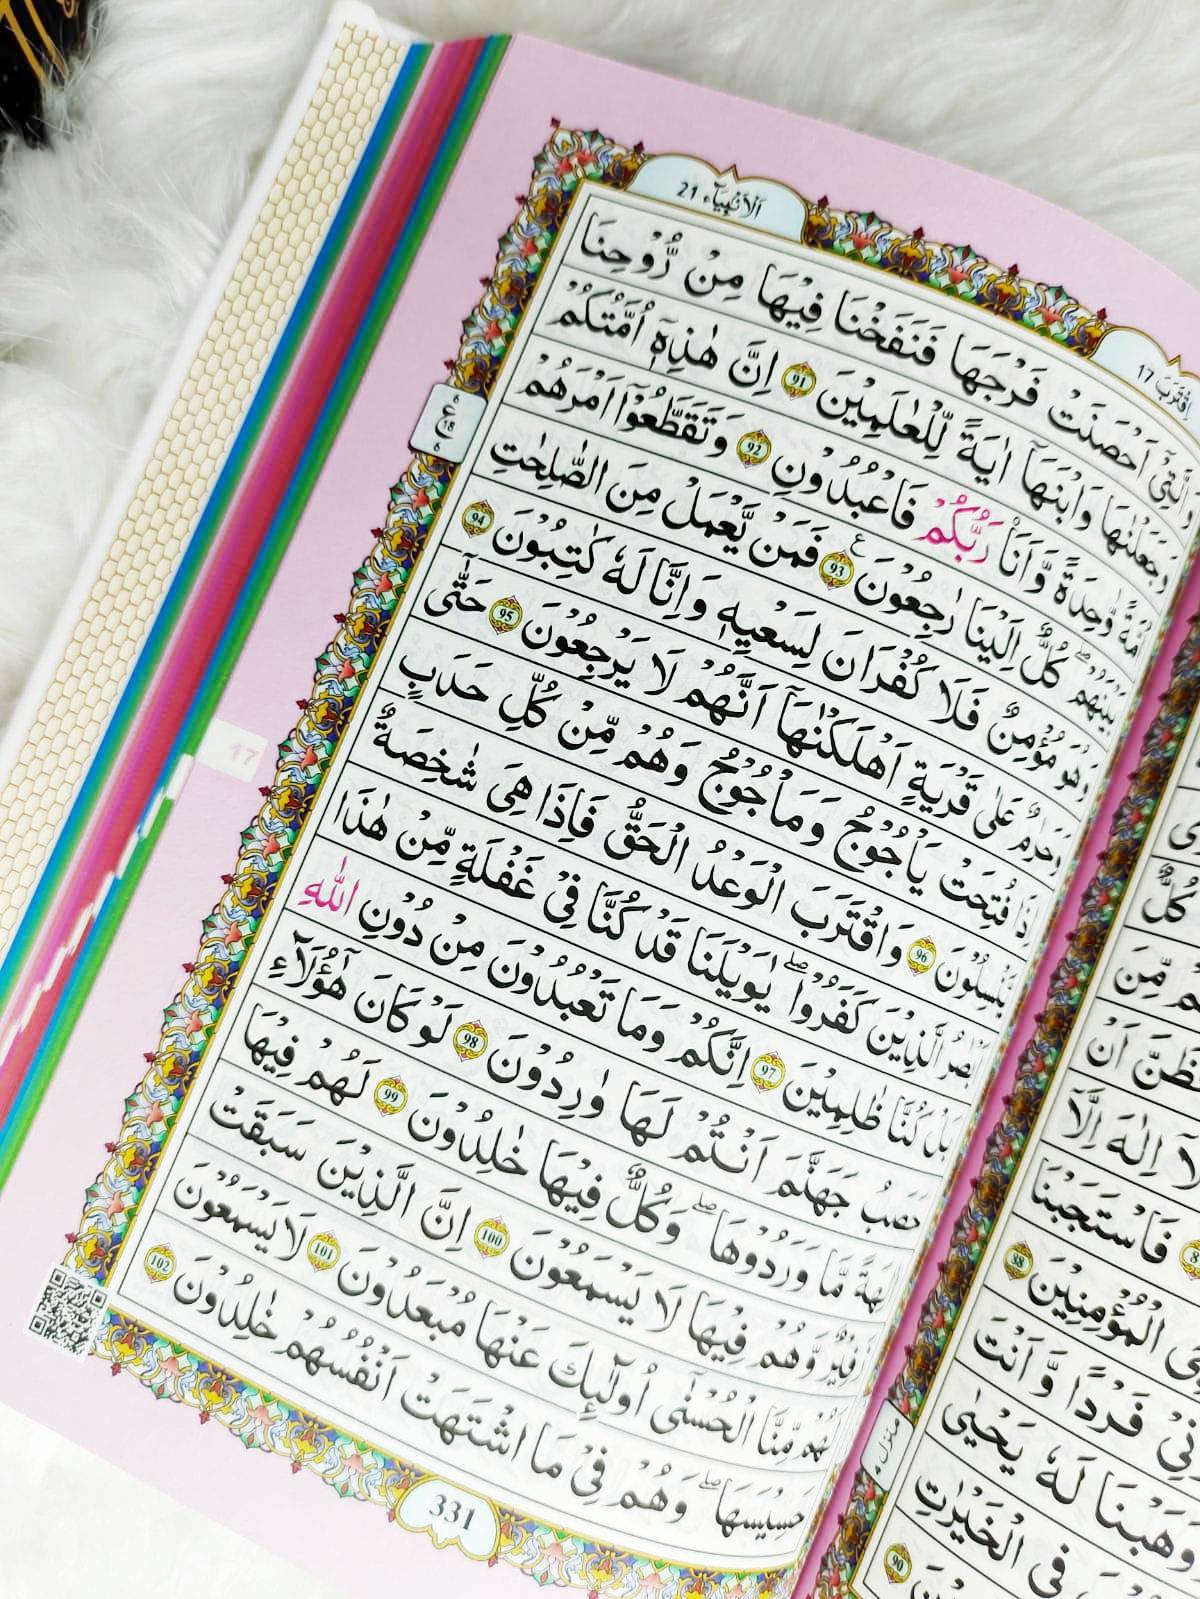 اَلْاَنْۢبِيَآء 21
اِقْتَرَبَ 17
وَالَّتِىْۤ اَحْصَنَتْ فَرْجَهَا فَنَفَخْنَا فِيْهَا مِنْ رُّوْحِنَا
وَجَعَلْنٰهَا وَابْنَهَاۤ اٰيَةً لِّلْعٰلَمِيْنَ 91 اِنَّ هٰذِهٖۤ اُمَّتُكُمْ
اُمَّةً وَّاحِدَةً وَّاَنَا رَبُّكُمْ فَاعْبُدُوْنِ 92 وَتَقَطَّعُوْۤا اَمْرَهُمْ
بَيْنَهُمْ ؕ كُلٌّ اِلَيْنَا رٰجِعُوْنَ 93 ع فَمَنْ يَّعْمَلْ مِنَ الصّٰلِحٰتِ
وَهُوَ مُؤْمِنٌ فَلَا كُفْرَانَ لِسَعْيِهٖ وَاِنَّا لَهٗ كٰتِبُوْنَ 94
وَحَرٰمٌ عَلٰى قَرْيَةٍ اَهْلَكْنٰهَاۤ اَنَّهُمْ لَا يَرْجِعُوْنَ 95 حَتّٰٓى
اِذَا فُتِحَتْ يَاْجُوْجُ وَمَاْجُوْجُ وَهُمْ مِّنْ كُلِّ حَدَبٍ
يَّنْسِلُوْنَ 96 وَاقْتَرَبَ الْوَعْدُ الْحَقُّ فَاِذَا هِىَ شٰخِصَةٌ
اَبْصَارُ الَّذِيْنَ كَفَرُوْا ؕ يٰوَيْلَنَا قَدْ كُنَّا فِىْ غَفْلَةٍ مِّنْ هٰذَا
بَلْ كُنَّا ظٰلِمِيْنَ 97 اِنَّكُمْ وَمَا تَعْبُدُوْنَ مِنْ دُوْنِ اللّٰهِ
حَصَبُ جَهَنَّمَ اَنْتُمْ لَهَا وٰرِدُوْنَ 98 لَوْ كَانَ هٰٓؤُلَآءِ
اٰلِهَةً مَّا وَرَدُوْهَا ؕ وَكُلٌّ فِيْهَا خٰلِدُوْنَ 99 لَهُمْ فِيْهَا
زَفِيْرٌ وَّهُمْ فِيْهَا لَا يَسْمَعُوْنَ 100 اِنَّ الَّذِيْنَ سَبَقَتْ
لَهُمْ مِّنَّا الْحُسْنٰٓى اُولٰٓئِكَ عَنْهَا مُبْعَدُوْنَ 101 لَا يَسْمَعُوْنَ
حَسِيْسَهَا ؕ وَهُمْ فِىْ مَا اشْتَهَتْ اَنْفُسُهُمْ خٰلِدُوْنَ 102
331
6
ع
18
6
17
كُلٌّ
لَاۤ اِلٰهَ اِلَّاۤ
فَاسْتَجَبْنَا
الْمُؤْمِنِيْنَ 88
فَرْدًا وَّاَنْتَ
وَوَهَبْنَا لَهٗ يَحْيٰى
فِى الْخَيْرٰتِ
90
منزل ٤